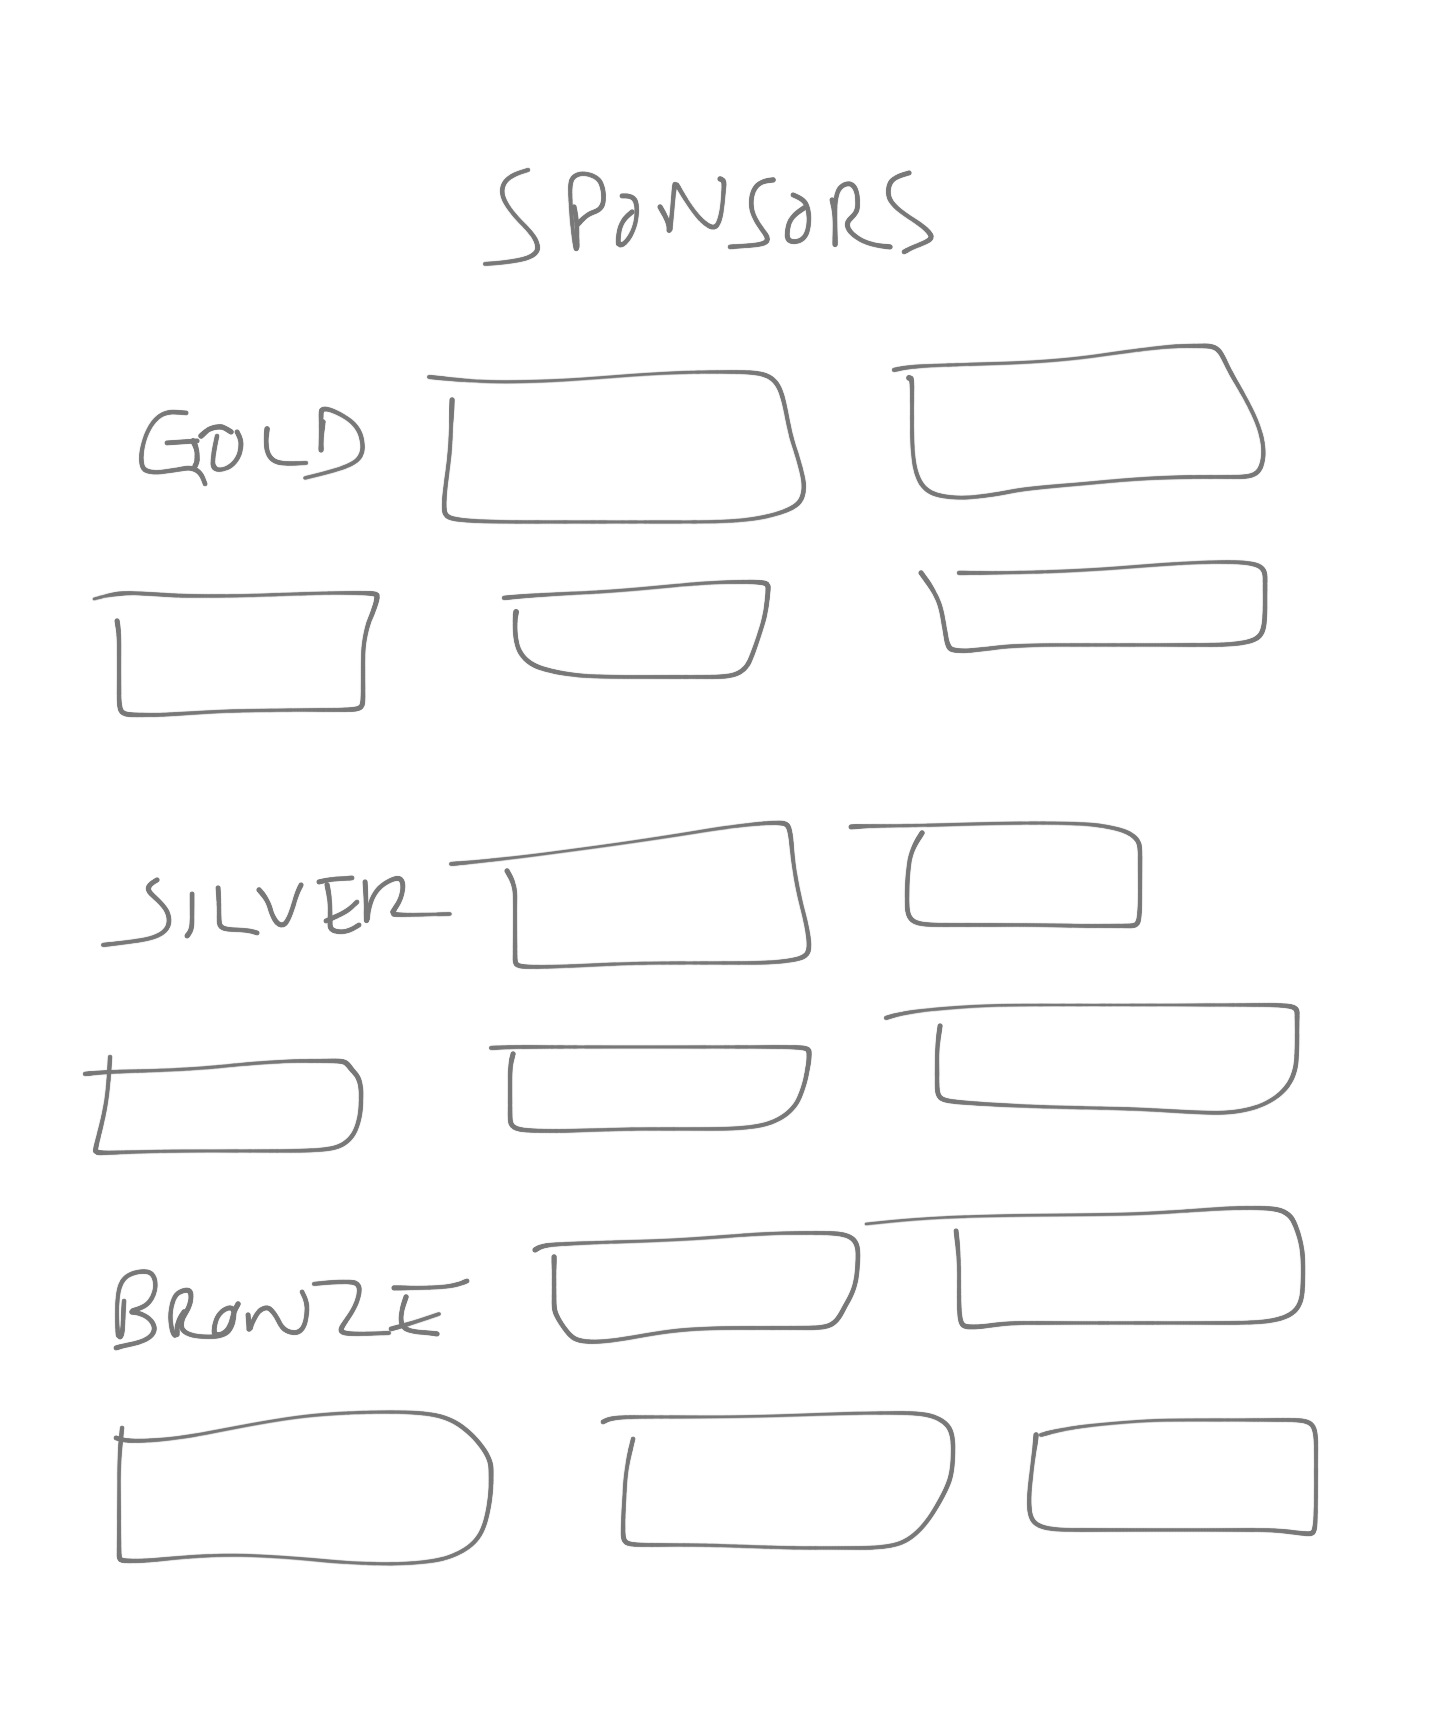 SPONSORS
GOLD
SILVER
BRONZE